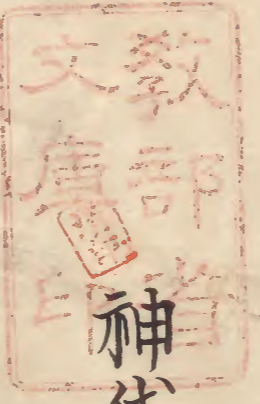 教部省
文庫印
神代